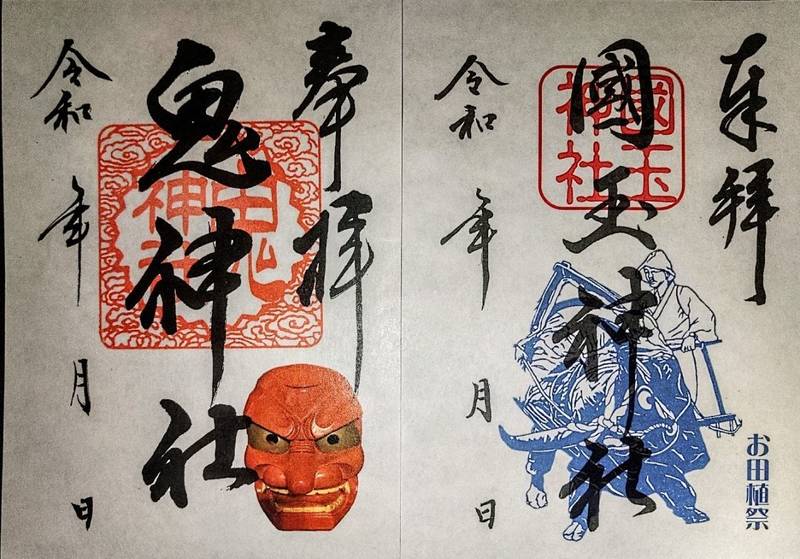 奉拝
國玉神社
國玉
神社
令和 年 月 日
お田植祭
奉拝
鬼神社
令和 年 月 日